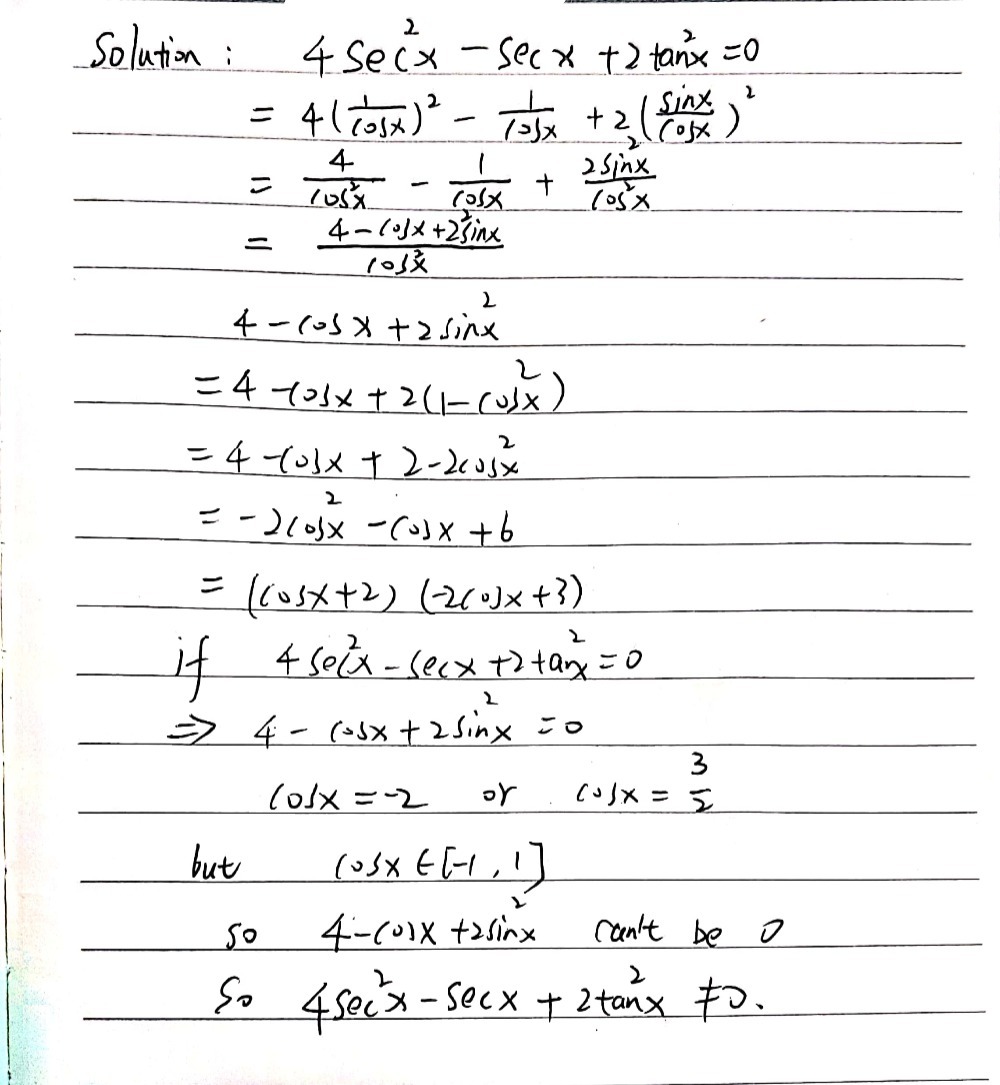 Solution : 4 sec²x - sec x + 2 tan²x = 0
= 4(1/cosx)² - 1/cosx + 2(sinx/cosx)²
= 4/cos²x - 1/cosx + 2sin²x/cos²x
= (4 - cosx + 2sin²x)/cos²x
4 - cos x + 2 sin²x
= 4 - cosx + 2(1 - cos²x)
= 4 - cosx + 2 - 2cos²x
= -2cos²x - cosx + 6
= (cosx+2) (-2cosx+3)
if 4 sec²x - secx + 2 tan²x = 0
⇒ 4 - cosx + 2 sin²x = 0
cosx = -2 or cosx = 3/2
but cosx ∈ [-1, 1]
so 4 - cosx + 2sin²x can't be 0
So 4 sec²x - secx + 2 tan²x ≠ 0.